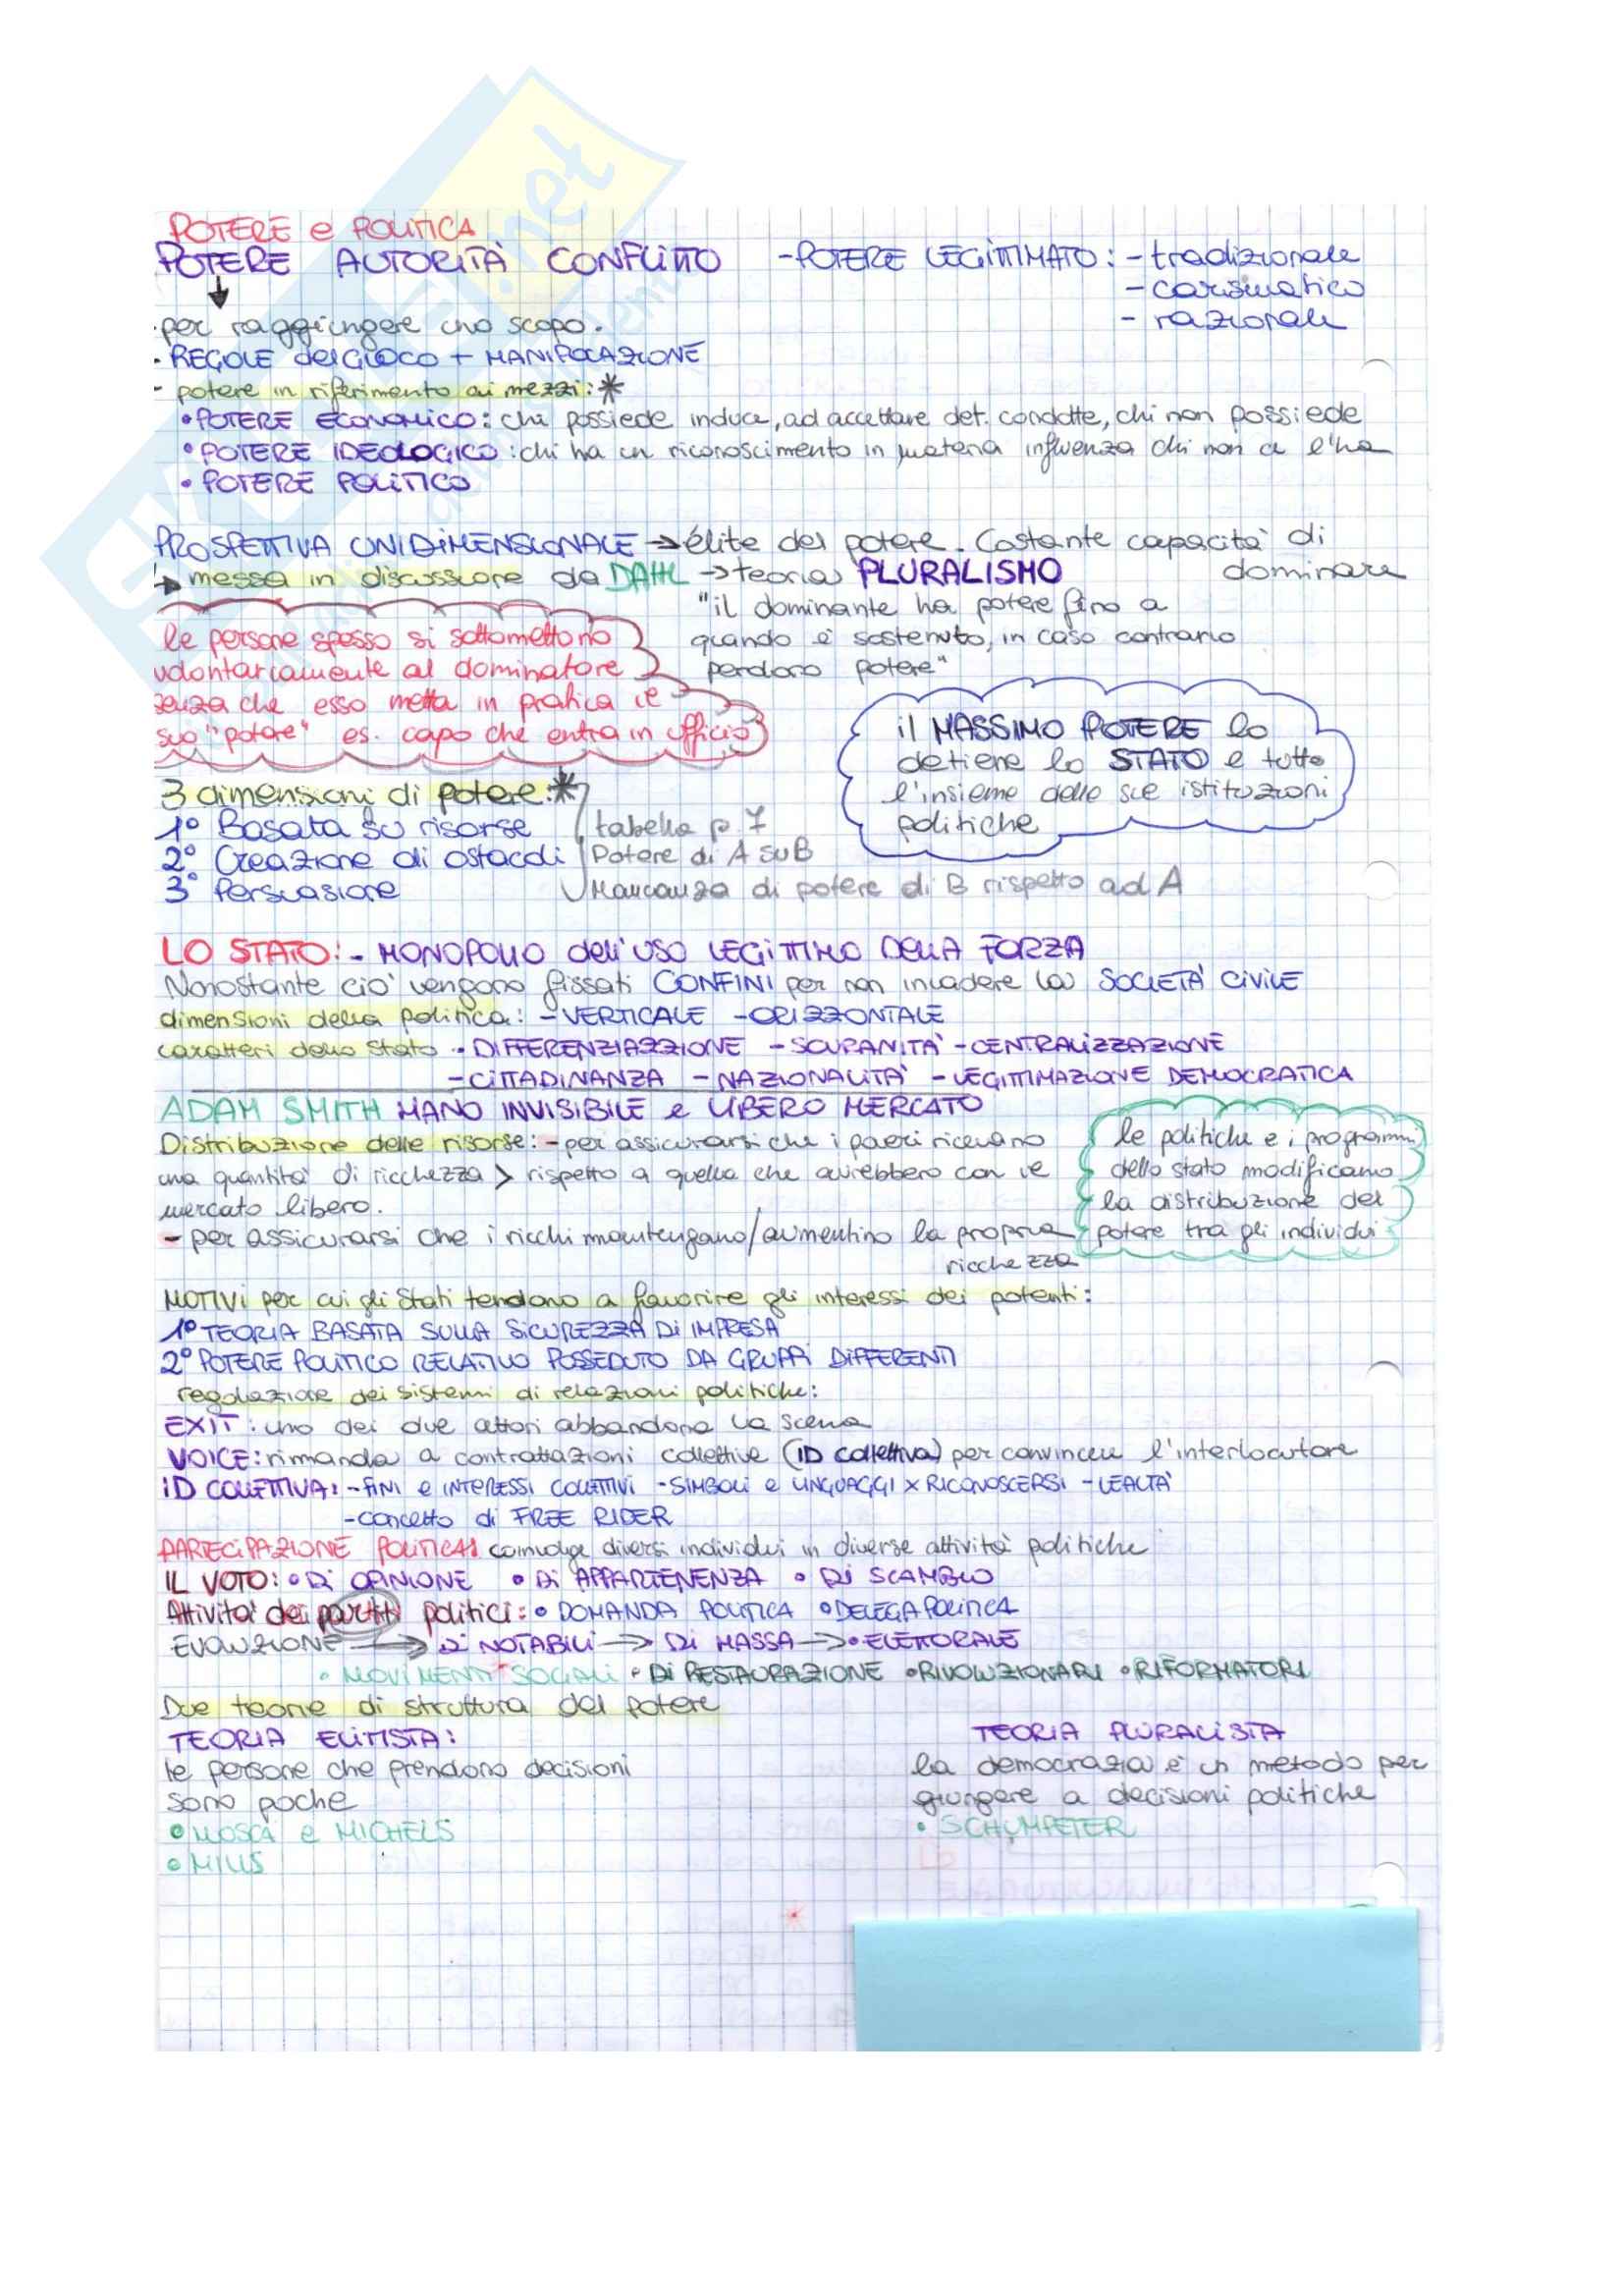 POTERE e POLITICA
POTERE AUTORITÀ CONFLITTO -POTERE LEGITTIMATO: - tradizionale
- carismatico
- razionale
·per raggiungere uno scopo.
- REGOLE del GIOCO + MANIPOLAZIONE
- potere in riferimento ai mezzi: *
• POTERE ECONOMICO: chi possiede induce, ad accettare det. condotte, chi non possiede
• POTERE IDEOLOGICO: chi ha un riconoscimento in materia influenza chi non ce l'ha
• POTERE POLITICO
PROSPETTIVA UNIDIMENSIONALE → élite del potere. Costante capacità di
dominare
↳ messa in discussione da DAHL → teoria PLURALISMO
"il dominante ha potere fino a
quando è sostenuto, in caso contrario
perdono potere"
le persone spesso si sottomettono
volontariamente al dominatore
senza che esso metta in pratica il
suo "potere" es. capo che entra in ufficio
il MASSIMO POTERE lo
detiene lo STATO e tutto
l'insieme delle sue istituzioni
politiche
3 dimensioni di potere: *
1° Basata su risorse
2° Creazione di ostacoli
3° Persuasione
tabella p. 7
Potere di A su B
Mancanza di potere di B rispetto ad A
LO STATO: - MONOPOLIO dell'USO LEGITTIMO DELLA FORZA
Nonostante ciò vengono fissati CONFINI per non invadere la SOCIETÀ CIVILE
dimensioni della politica: - VERTICALE - ORIZZONTALE
caratteri dello Stato - DIFFERENZIAZZIONE - SOVRANITÀ - CENTRALIZZAZIONE
- CITTADINANZA - NAZIONALITÀ - LEGITTIMAZIONE DEMOCRATICA
ADAM SMITH MANO INVISIBILE e LIBERO MERCATO
Distribuzione delle risorse: - per assicurarsi che i poveri ricevano
una quantità di ricchezza > rispetto a quella che avrebbero con il
mercato libero.
- per assicurarsi che i ricchi mantengano/aumentino la propria
ricchezza
le politiche e i programmi
dello stato modificano
la distribuzione del
potere tra gli individui
MOTIVI per cui gli Stati tendono a favorire gli interessi dei potenti:
1° TEORIA BASATA SULLA SICUREZZA DI IMPRESA
2° POTERE POLITICO RELATIVO POSSEDUTO DA GRUPPI DIFFERENTI
regolazione dei sistemi di relazioni politiche:
EXIT: uno dei due attori abbandona la scena
VOICE: rimanda a contrattazioni collettive (ID collettiva) per convincere l'interlocutore
ID COLLETTIVA: - FINI e INTERESSI COLLETTIVI - SIMBOLI e LINGUAGGI x RICONOSCERSI - LEALTÀ
- concetto di FREE RIDER
PARTECIPAZIONE POLITICA: coinvolge diversi individui in diverse attività politiche
IL VOTO: • DI OPINIONE • DI APPARTENENZA • DI SCAMBIO
Attività dei partiti politici: • DOMANDA POLITICA • DELEGA POLITICA
EVOLUZIONE → DI NOTABILI → DI MASSA → • ELETTORALE
• MOVIMENTI SOCIALI • DI RESTAURAZIONE • RIVOLUZIONARI • RIFORMATORI
Due teorie di struttura del potere
TEORIA ELITISTA:
le persone che prendono decisioni
sono poche
• MOSCA e MICHELS
• MILLS
TEORIA PLURALISTA
la democrazia è un metodo per
giungere a decisioni politiche
• SCHUMPETER